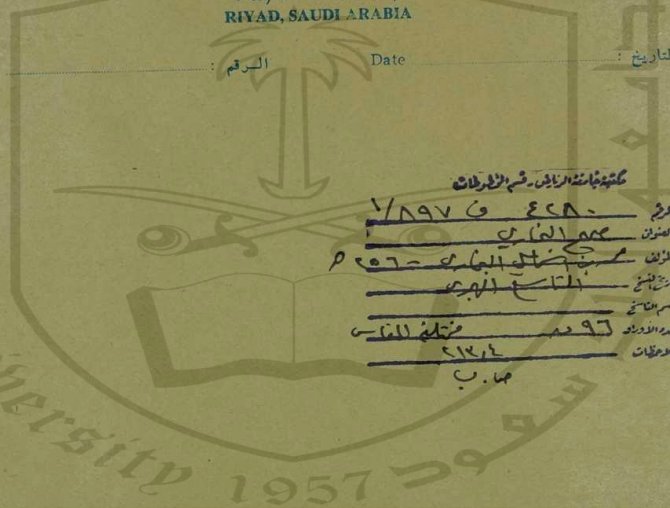 RIYAD, SAUDI ARABIA
التاريخ : Date الرقم :
مكتبة جامعة الرياض - قسم المخطوطات
الرقم ٤٢٨٠ ف ١/٨٩٧
العنوان صحيح البخاري
المؤلف محمد بن اسماعيل البخاري - ٢٥٦ هـ
تاريخ النسخ التاسع الهجري
اسم الناسخ
عدد الأوراق ٩٦ مختلف المقاس
ملاحظات ٢١٣,٤
ص . ب
University 1957 سعود